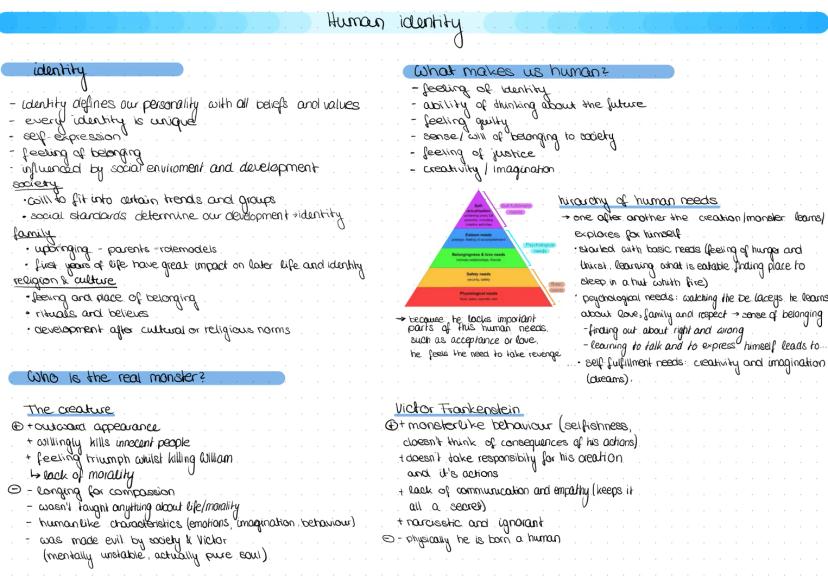 Human identity
identity
- identity defines our personality with all beliefs and values
- every identity is unique
- self-expression
- feeling of belonging
- influenced by social enviroment and development
society
• will to fit into certain trends and groups
• social standards determine our development → identity
family
• upbringing - parents → rolemodels
• first years of life have great impact on later life and identity
religion & culture
• feeling and place of belonging
• rituals and believes
• development after cultural or religious norms
What makes us human?
- feeling of identity
- ability of thinking about the future
- feeling guilty
- sense/ will of belonging to society
- feeling of justice
- creativity / imagination
Self-
actualization:
Esteem needs
Belongingness & love needs
Safety needs
Physiological needs
Psychological
needs
Basic
needs
→ because he lacks important
parts of this human needs.
such as acceptance or love.
he feels the need to take revenge
hirarchy of human needs
→ one after another the creation/monster learns/
explores for himself
• started with basic needs (feeling of hunger and
thirst. learning what is eatable. finding place to
sleep in a hut with fire)
• psychological needs: watching the De laceys he learns
about love, family and respect → sense of belonging
- finding out about right and wrong
- learning to talk and to express himself leads to...
...• self fulfillment needs: creativity and imagination
(dreams).
Who is the real monster?
The creature
⊕ + outward appearance
+ willingly kills innocent people
+ feeling triumph whilst killing William
↳ lack of morality
⊖ - longing for compassion
- wasn't taught anything about life/morality
- humanlike characteristics (emotions, imagination. behaviour)
- was made evil by society & Victor
(mentally unstable, actually pure soul)
Victor Frankenstein
⊕ + monsterlike behaviour (selfishness,
doesn't think of consequences of his actions)
+ doesn't take responsibity for his creation
and it's actions
+ lack of communication and empathy (keeps it
all a secret)
+ narcisstic and ignorant
⊖ - physically he is born a human